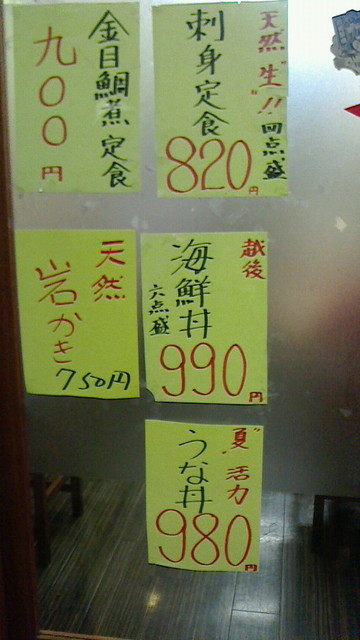 金目鯛煮定食
九〇〇円
天然"生"!!四点盛
刺身定食
820円
天然
岩かき
750円
越後
海鮮丼
六点盛
990円
夏"活力
うな丼
980円